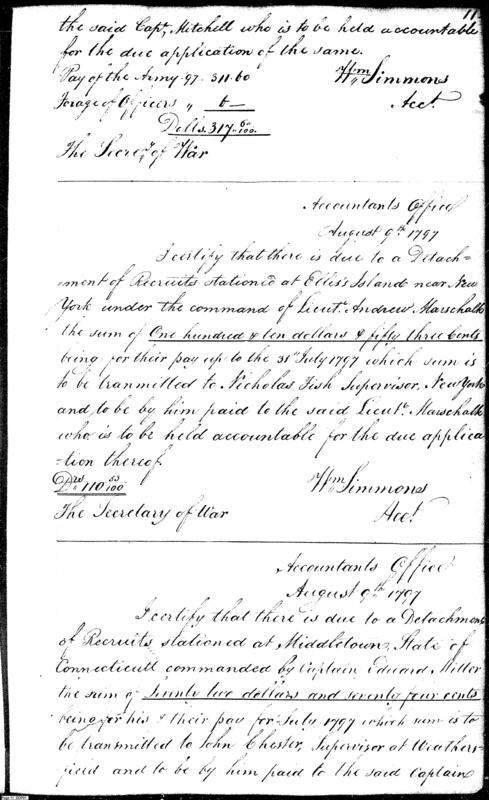 11
the said Capt. Mitchell who is to be held accountable
for the due application of the same.
Pay of the Army 97. 311.60
Wm Simmons
Forage of Officers " 6—
Acct
Dolls. 317 60/100
The Secrey. of War
Accountants Office
August 9th 1797
I certify that there is due to a Detach-
-ment of Recruits stationed at Ellis's Island near New
York under the command of Lieut. Andrew Marschalk
the sum of One hundred & ten dollars & fifty three Cents
being for their pay up to the 31st July 1797 which sum is
to be tranmitted to Nicholas Fish Supervisor, New York
and to be by him paid to the said Lieut. Marschalk
who is to be held accountable for the due applica
-tion thereof
Drs 110 53/100
Wm Simmons
The Secretary of War
Acct.
Accountants Office
August 9th 1797
I certify that there is due to a Detachment
of Recruits stationed at Middletown, State of
Connecticutt commanded by Captain Edward Miller
the sum of Seventy two dollars and seventy four cents
being for his & their pay for July 1797 which sum is to
be transmitted to John Chester, Supervisor at Weathers-
field and to be by him paid to the said Captain